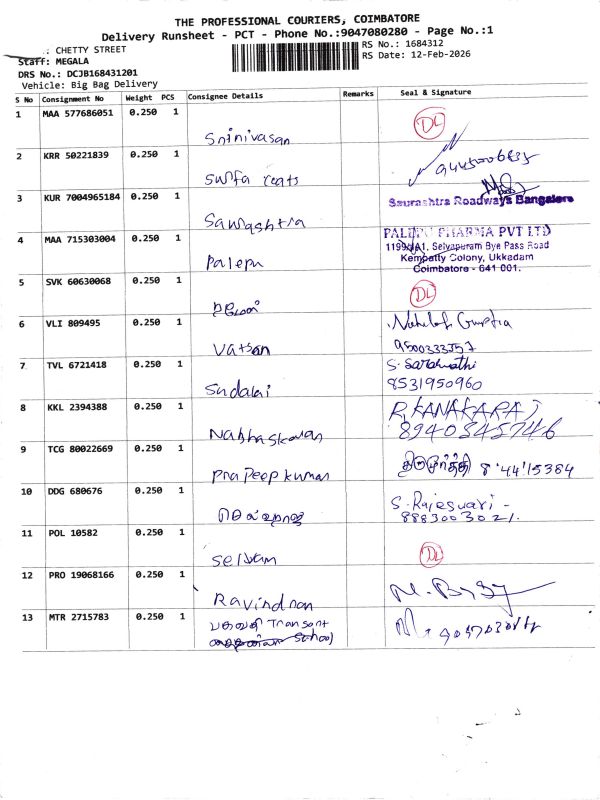 THE PROFESSIONAL COURIERS, COIMBATORE
Delivery Runsheet - PCT - Phone No.:9047080280 - Page No.:1
: CHETTY STREET
RS No.: 1684312
Staff: MEGALA
RS Date: 12-Feb-2026
DRS No.: DCJB168431201
Vehicle: Big Bag Delivery
S No Consignment No Weight PCS Consignee Details Remarks Seal & Signature
1 MAA 577686051 0.250 1 Srinivasan DL
2 KRR 50221839 0.250 1
3 KUR 7004965184 0.250 1 Saurashtra Saurashtra Roadways Bangalore
4 MAA 715303004 0.250 1 Palepu PALEPU PHARMA PVT LTD
Selvapuram Bye Pass Road
Kempatty Colony, Ukkadam
Coimbatore - 641 001.
5 SVK 60630068 0.250 1 DL
6 VLI 809495 0.250 1 Vatsan
9500333357
7 TVL 6721418 0.250 1 Sudalai
8531950960
8 KKL 2394388 0.250 1 R, KANAKARAJ
8940345746
9 TCG 80022669 0.250 1 Pradeep kumar
10 DDG 680676 0.250 1 S. Rajeswari -
8883003021.
11 POL 10582 0.250 1 DL
12 PRO 19068166 0.250 1 Ravindran
13 MTR 2715783 0.250 1
School